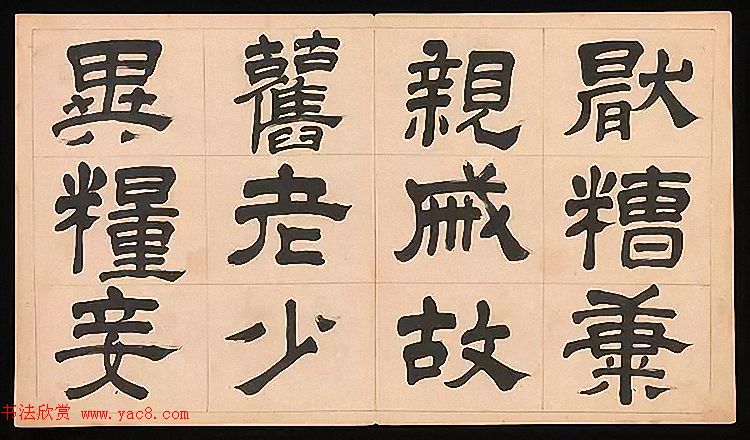 猒糟康
親戚故
舊老少
異糧妾
书法欣赏 www.yac8.com